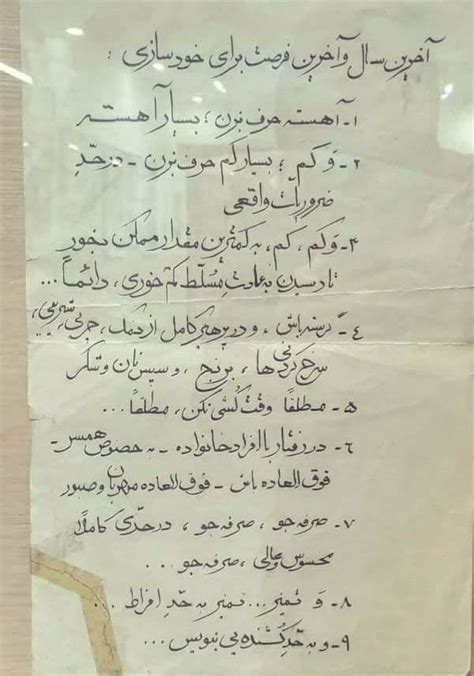 آخرین سال و آخرین فرصت برای خودسازی :
۱- آهسته حرف بزن ؛ بسیار آهسته
۲- وَ کم ؛ بسیار کم حرف بزن - در حدِّ
ضروریّات واقعی
۳- وَ کم ، کم ، به کمترین مقدار ممکن بخور
تا رسیدن به عادتِ مسلّطِ کم‌خوری ، دائماً ...
٤- گرسنه باش ، و در پرهیز کامل از نمک ، چربی ،
سرخ کردنی ها ، برنج ، و سپس نان و شکر
۵- مطلقا وقت کُشی نکن ، مطلقا ...
۶- در رفتار با افراد خانواده - به خصوص همسر -
فوق العاده باش - فوق العاده مهربان و صبور
۷- صرفه جو ، صرفه جو ، در حدّی کاملاً
محسوس و عالی ، صرفه جو ...
۸- وَ تمیز ... تمیز به حدِّ افراط ...
۹- و به حدِّ کُشنده یی بنویس ...